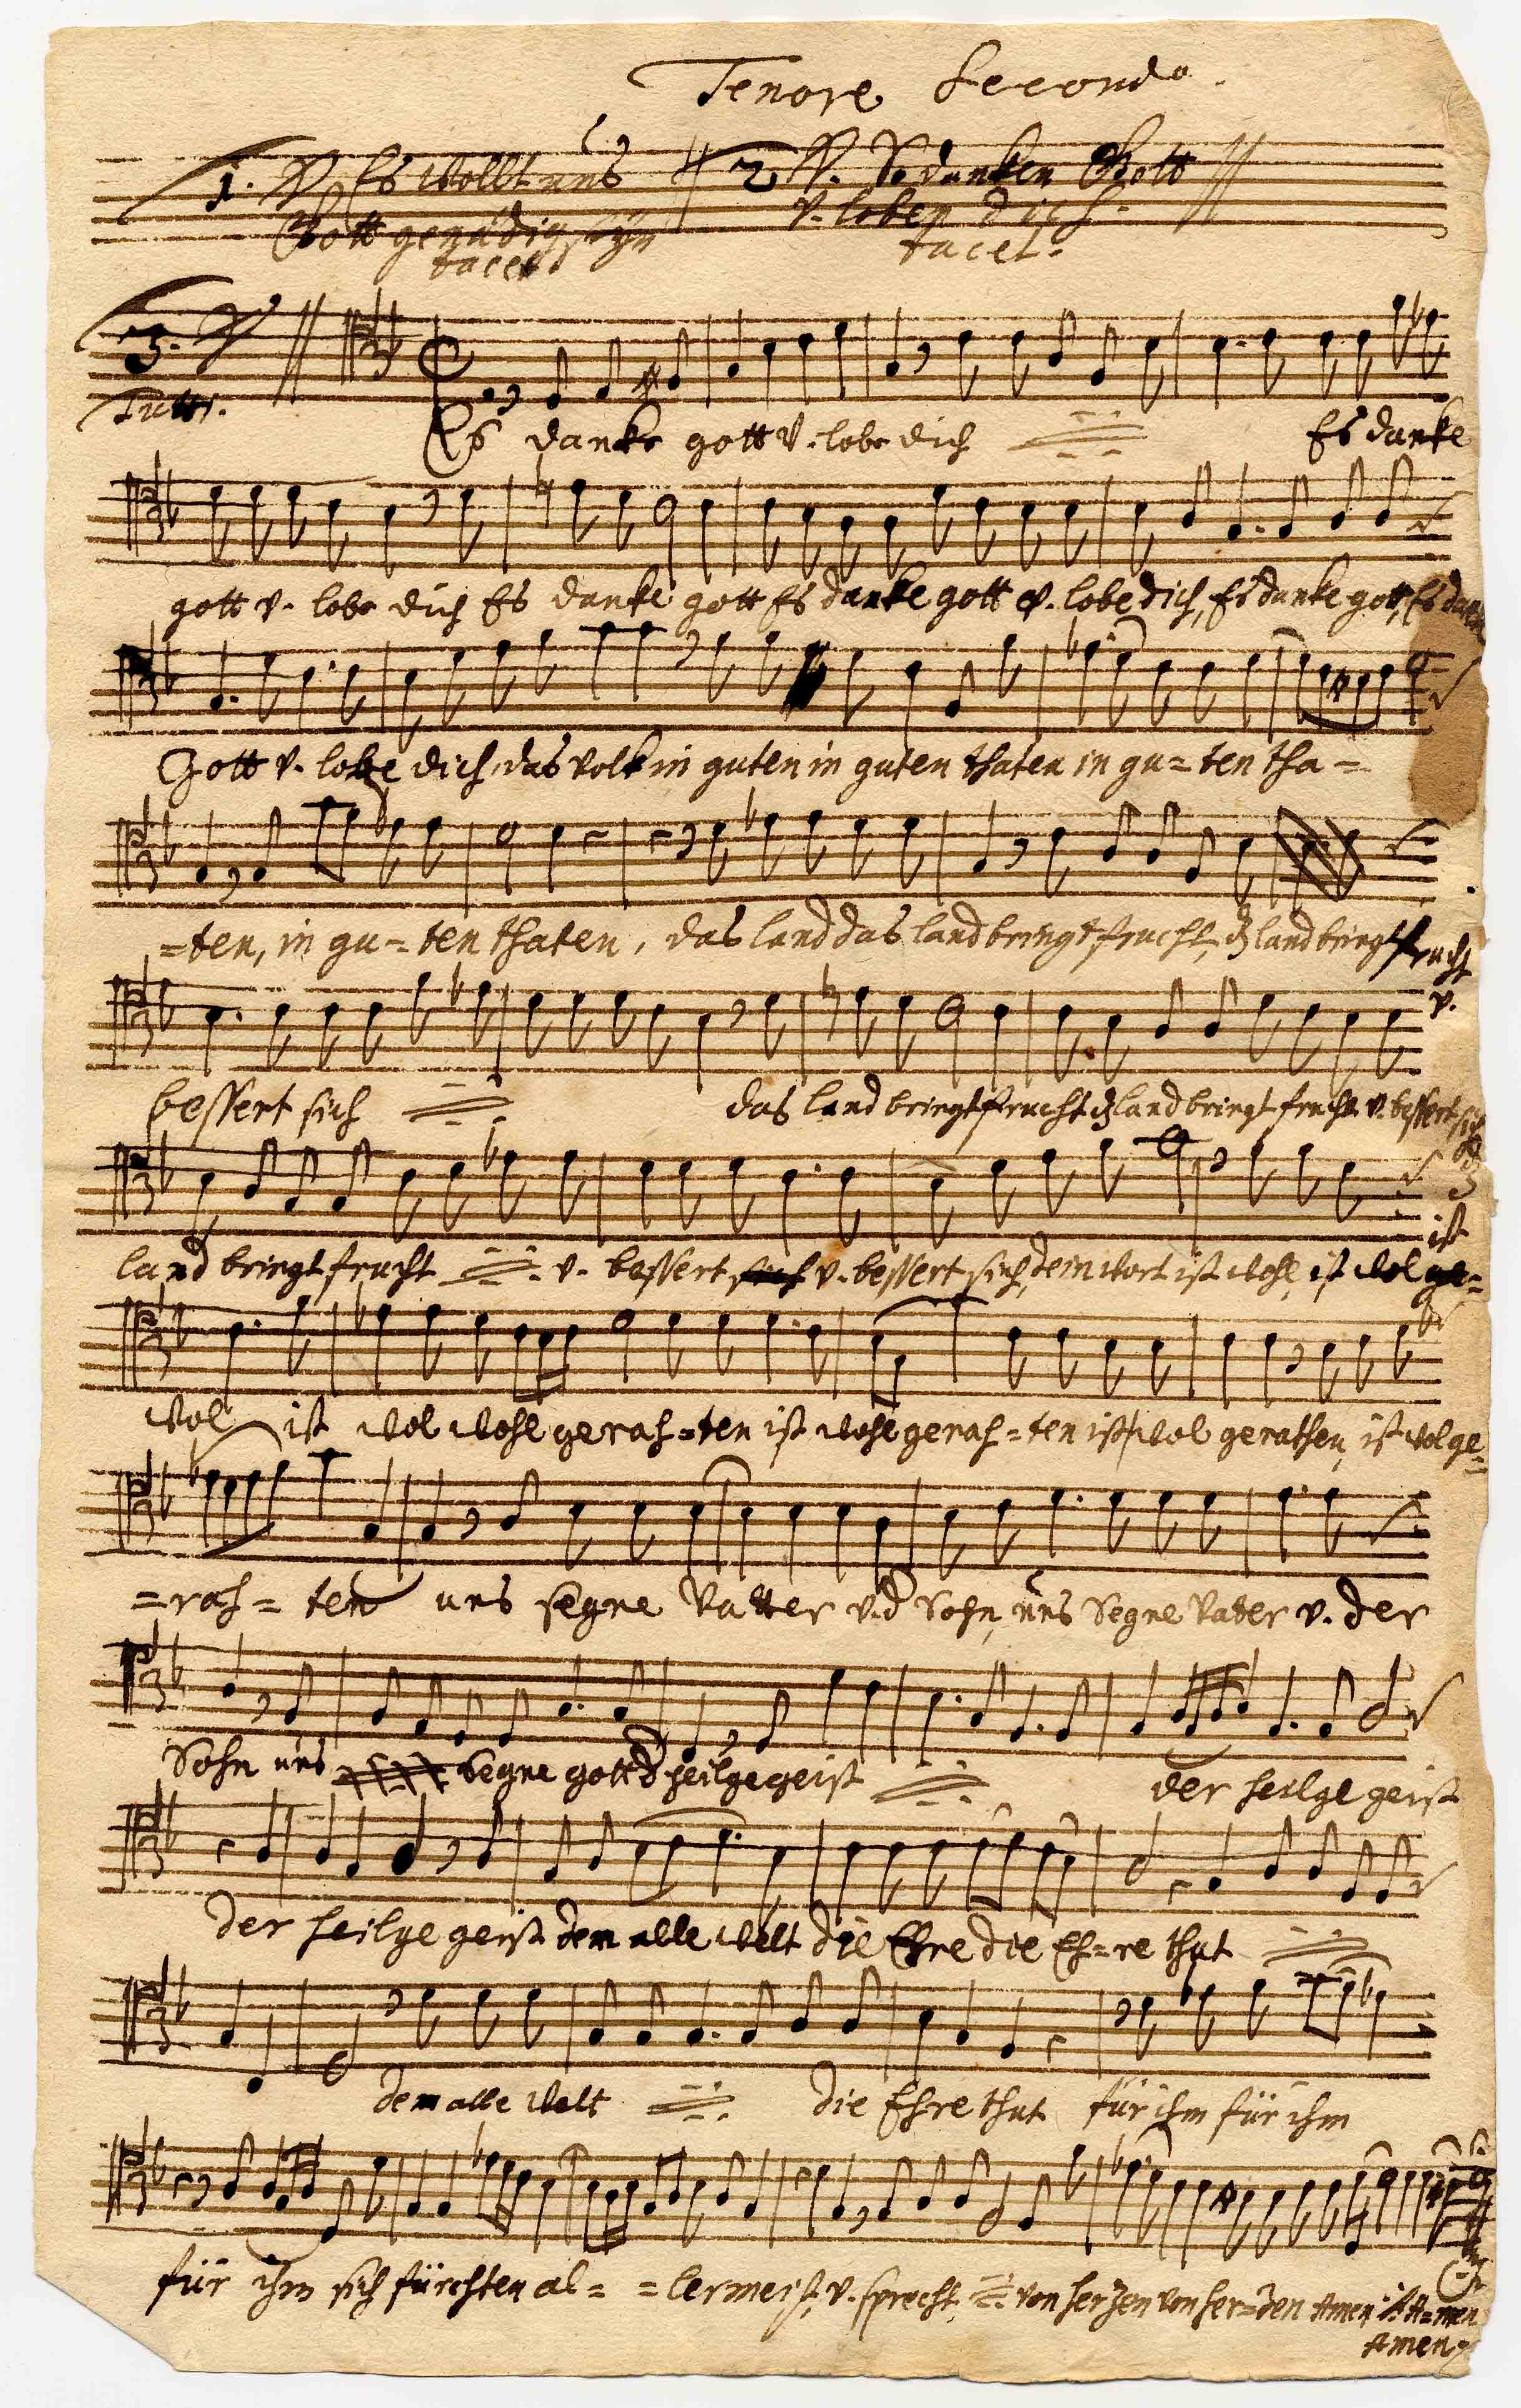 Tenore Secondo.
1. V. Es wollt uns 2 V. So danken Gott
Gott genädig seyn v. loben dich.
tacet tacet.
3. V
Tutti.
Es danke gott v. lobe dich Es danke
gott v. lobe dich Es danke gott Es danke gott v. lobe dich, Es danke gott, Es danke
Gott v. lobe dich, das volk in guten in guten thaten in gu= ten tha=
=ten, in gu= ten thaten, das land das land bringt frucht, dz land bringt frucht
v.
bessert sich das land bringt frucht dz land bringt frucht v. bessert sich
dz
land bringt frucht v. bessert v. bessert sich, dein wort ist wohl, ist wol
ist
wol ist wol wohl gerah=ten ist wohl gerah=ten ist wol gerathen, ist wol ge=
=rah= ten uns segne Vatter v. d Sohn, uns Segne Vatter v. der
Sohn uns Segne gott d heilge geist der heilge geist
der heilge geist dem alle welt die Ehre die Eh=re thut
dem alle welt die Ehre thut für ihm für ihm
für ihm sich fürchten al= =lermeist, v. sprecht von herzen von her=zen Amen A=men
Amen